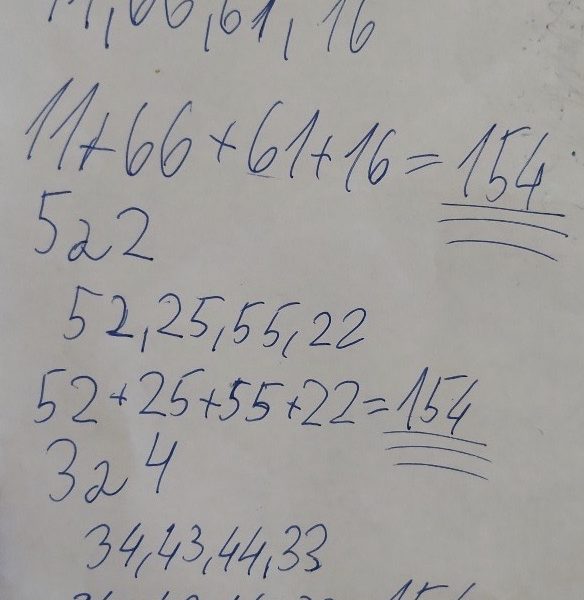 11,66,61,16
11+66+61+16=154
5 a 2
52,25,55,22
52+25+55+22=154
3 a 4
34,43,44,33